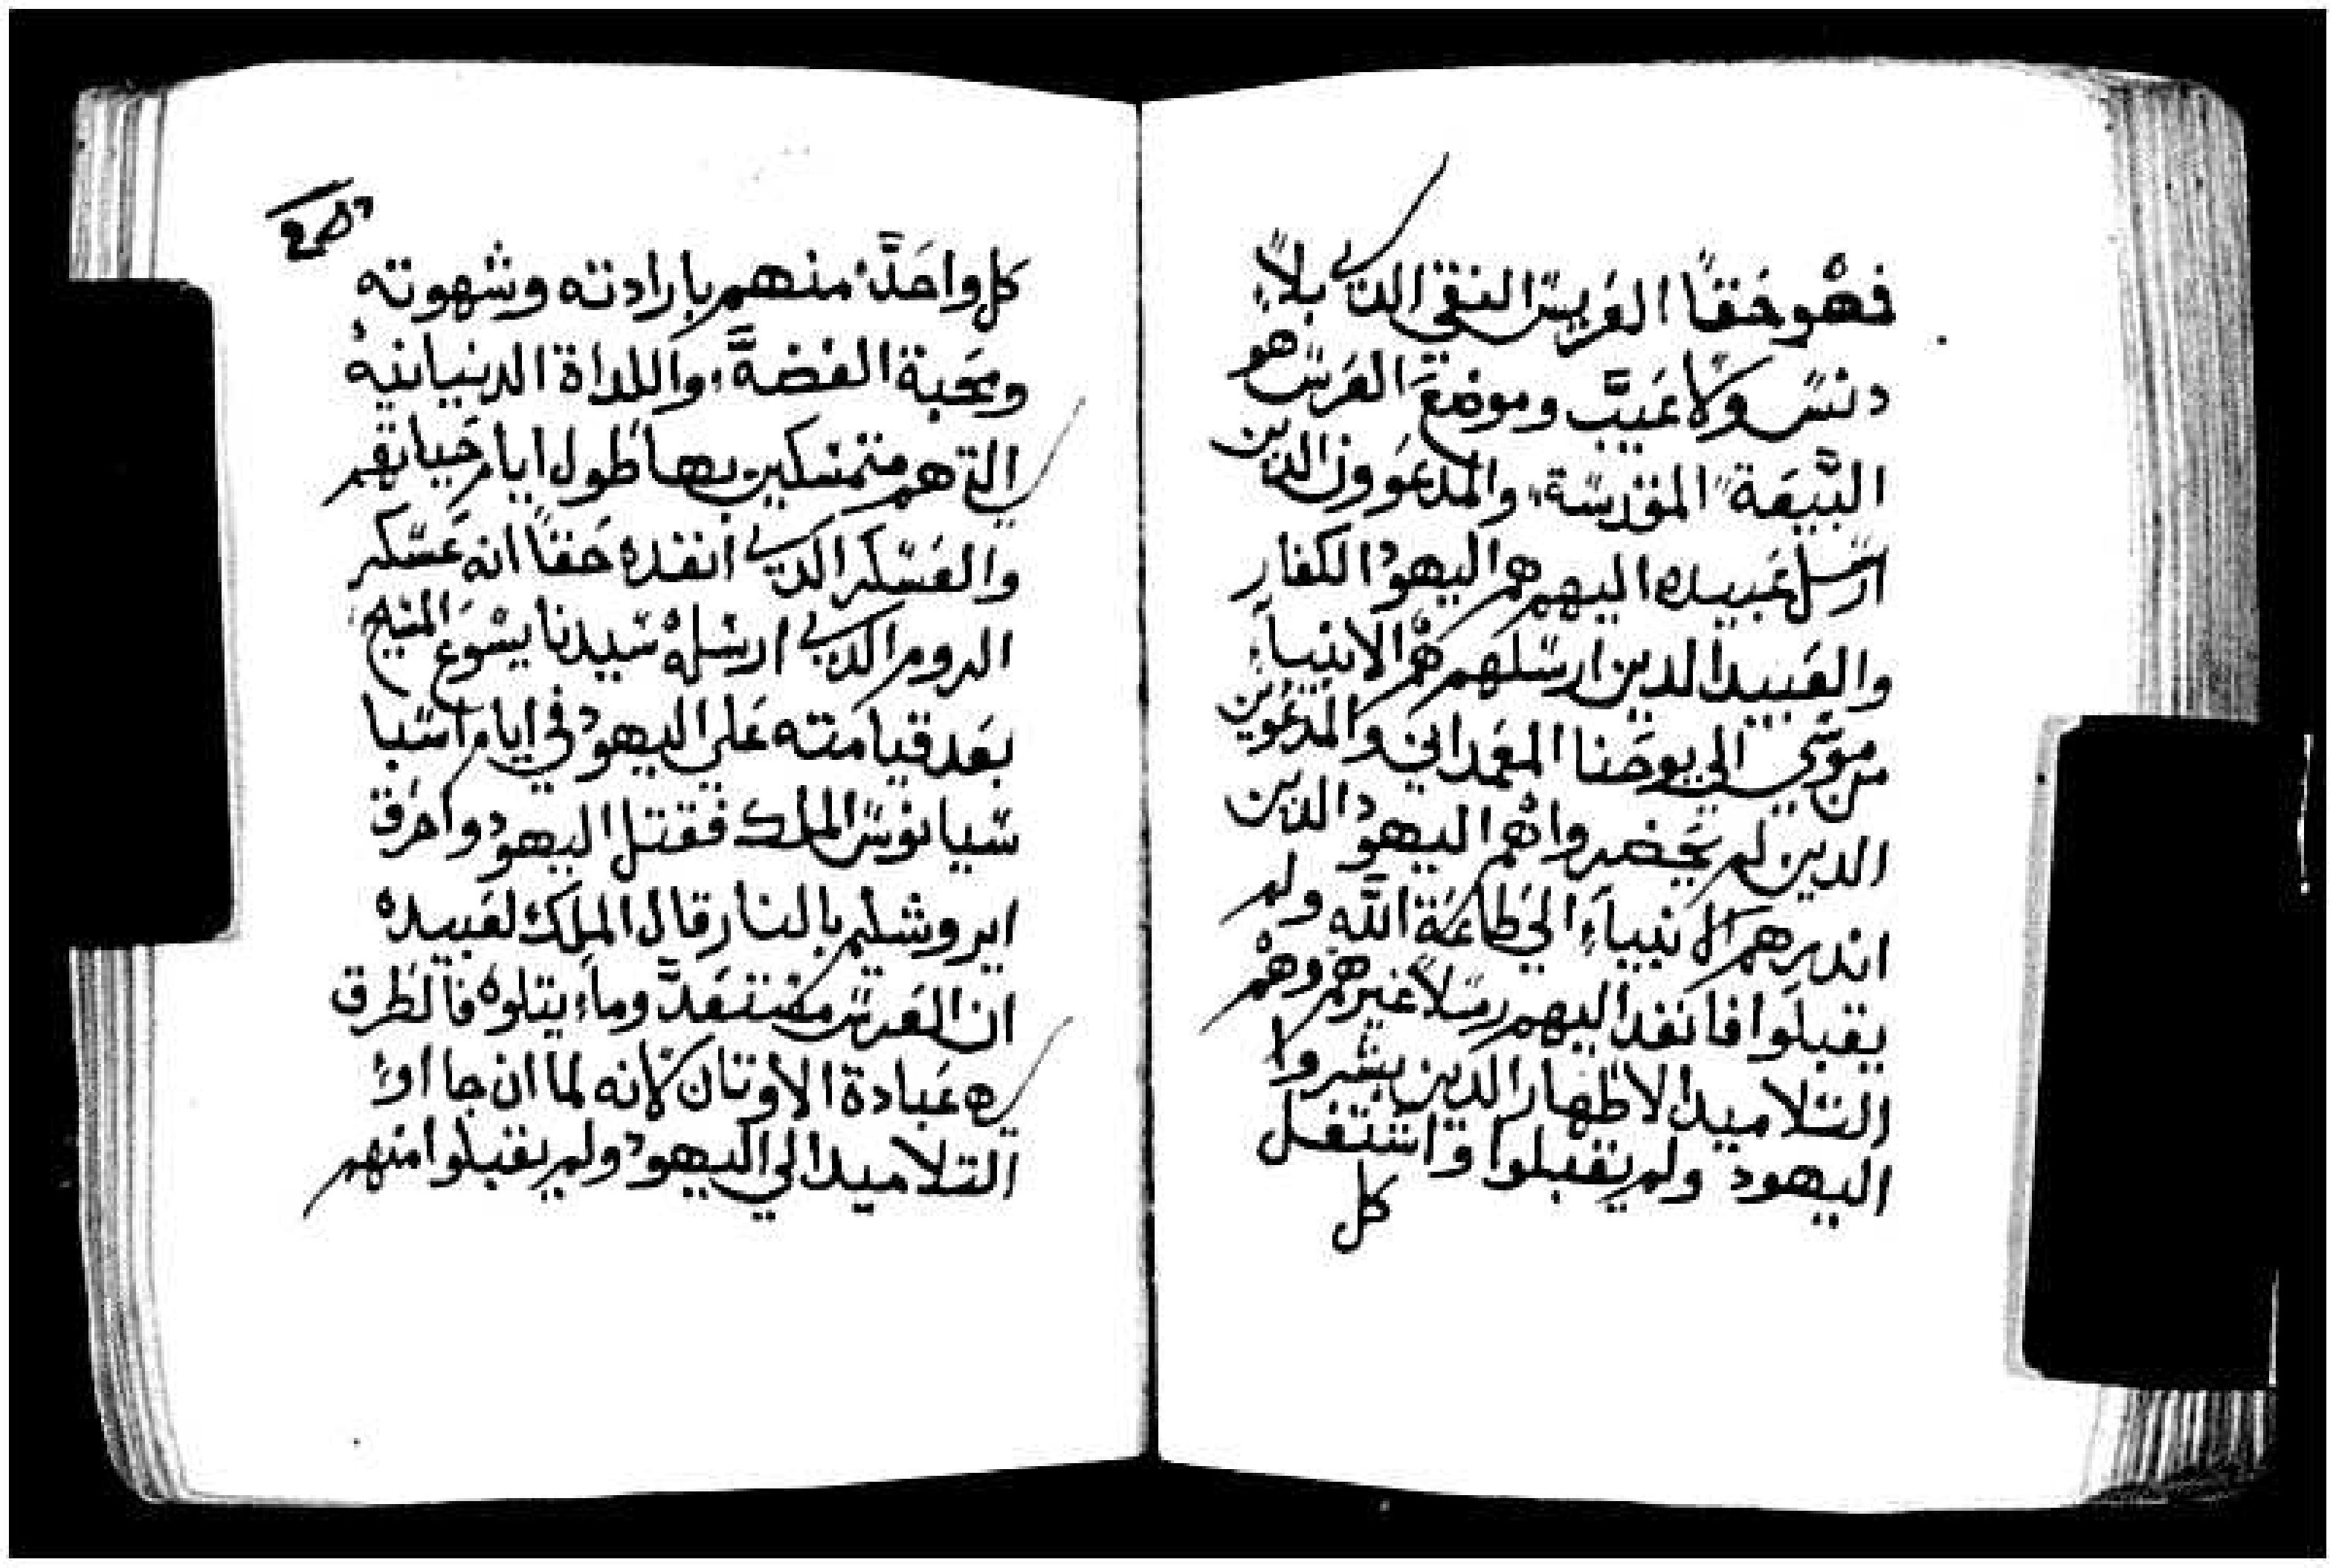 فهو حقًا العريس النقي الذي بلاءِ
دنس ولا عيب وموضع العرس هو
البيعة المقدسة، والمدعوون الدين
ارسل عبيده اليهم هم اليهود الكفار
والعبيد الدين ارسلهم هم الانبياءِ
من موسي الي يوحنا المعمداني والمدعوين
الدين لم يحضروا هم اليهود الدين
اندرهم الانبياءِ الي طاعة الله ولم
يقبلوا فانفد اليهم رسلاً غيرهم وهم
التلاميد الاطهار الدين بشروا
اليهود ولم يقبلوا واشتغل
كل
كل واحد منهم بارادته وشهوته
ومحبة الفضة، واللداة الدنيانيه
التي هم متمسكين بها طول ايام حياتهم
والعسكر الدي انفده حقًا انه عسكر
الروم الدي ارسله سيدنا يسوع المسيح
بعد قيامته علي اليهود في ايام اسبا
سيانوس الملك فقتل اليهود واحرق
ايروشليم بالنار قال الملك لعبيده
ان العرس مستعد وماءِ يتلوه فالطرق
هي عبادة الاوتان لانه لما ان جااوا
التلاميد الي اليهود ولم يقبلوا منهم